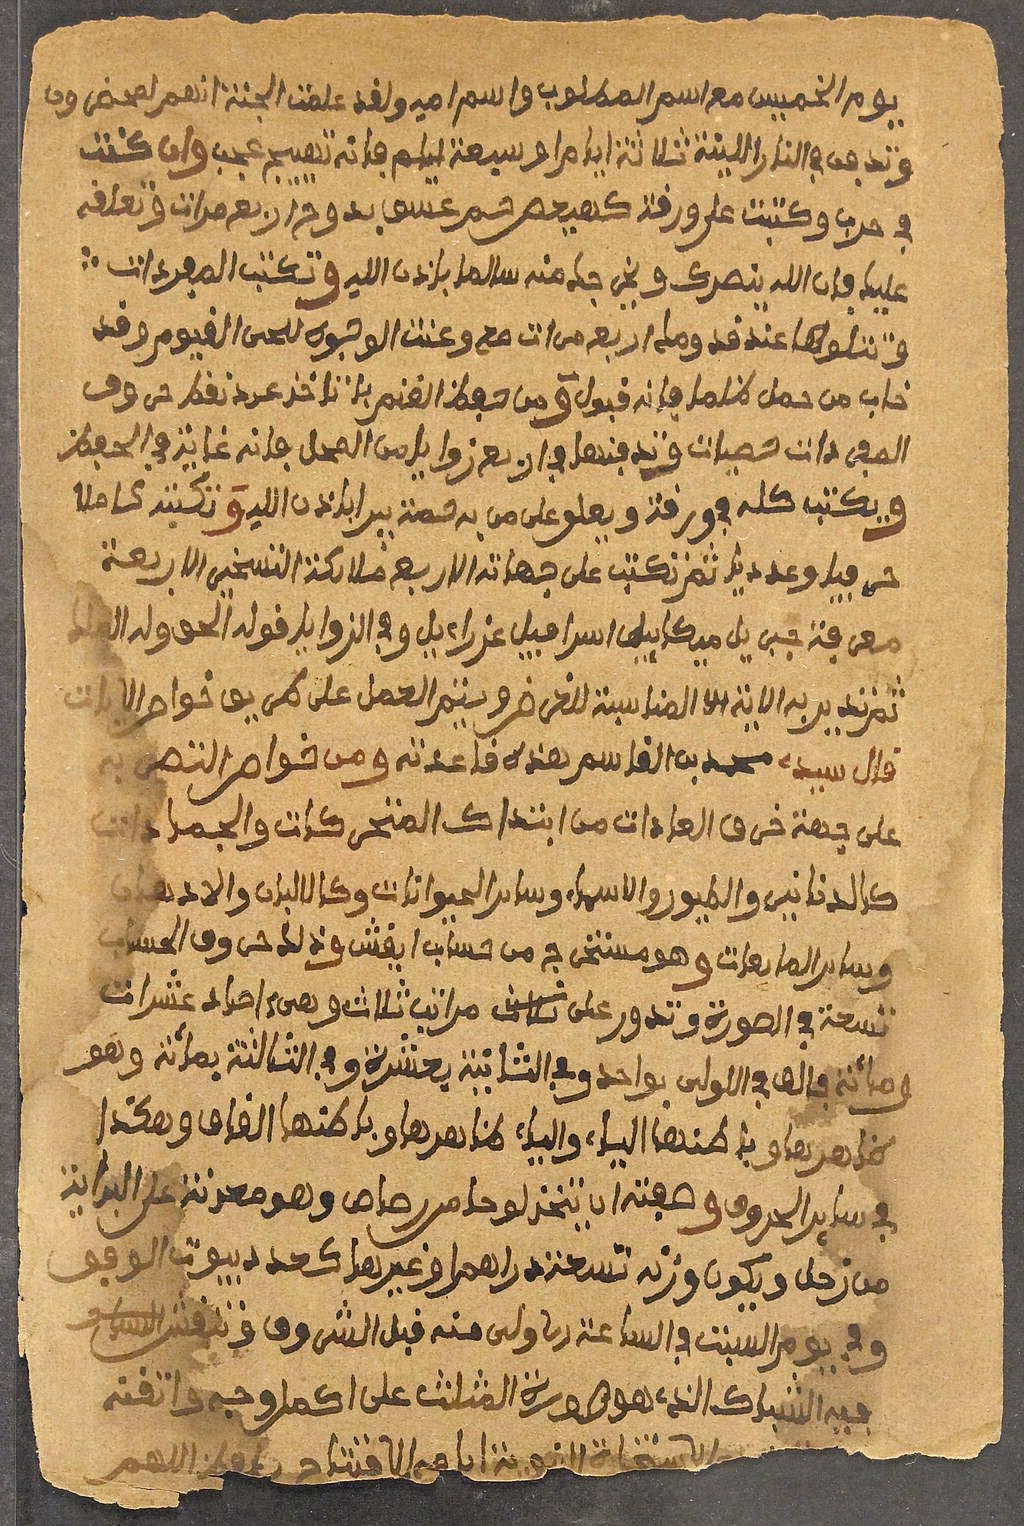 يوم الخميس مع اسم المطلوب واسم امه ولقد علمت الجنة انهم لمحضرون
وتدفن في النار اللينة ثلاثة ايام او سبعة ايام فانه تهييج عجيب وان كنت
في حرب وكتبت على ورقة كهيعص حم عسق بدوح اربع مرات وتعلقه
عليك فان الله ينصرك ويخرجك منه سالما باذن الله وتكتب المفردات
وتتلوها عند قدومك اربع مرات مع وعنت الوجوه للحي القيوم وقد
خاب من حمل ظلما فانه قبول ومن حفظ الغنم بان تاخذ عدد نفط حروف
المفردات حصيات وتدفنها في اربع زوايا من المحل فانه غاية في الحفظ
ويكتب كله في ورقة ويعلق على من به حمة يبرا باذن الله وتكتبه كاملا
حرفيا وعدديا ثم تكتب على جهاته الاربع ملائكة التسخير الاربعة
معرفة جبريل ميكاييل اسرافيل عزراييل وفي الزوايا قوله الحق وله الملك
ثم تدير به الاية المناسبة للغرض ويتم العمل على طريق خواص الايات
قال سيدي محمد بن القاسم هذه قاعدته ومن خواص التصريف
على جهة خرق العادات من المتحركات والجمادات
كالدنانير والطيور والاسماء وساير الحيوانات وكالالبان والادهان
وساير المايعات وهو مستخرج من حساب ايقش وذلك حروف الحساب
تسعة في الصورة وتدور على مراتب ثلاث وهي احاد عشرات
ومائة فالف في الاولى بواحد وفي الثانية بعشرة وفي الثالثة بمائة وهو
ظاهرها وباطنها الياء والياء ظاهرها وباطنها القاف وهكذا
في ساير الحروف وصفته ان تتخذ لوحا من رصاص وهو معدنة على البداية
من زحل ويكون وزنه تسعة دراهم او غيرها كعدد بيوت الوفق
وفي يوم السبت في الساعة الاولى منه قبل الشروق وتنقش
فيه الشباك الذي هو صورة المثلث على اكمل وجه واتقنه
الافتتاح اللهم